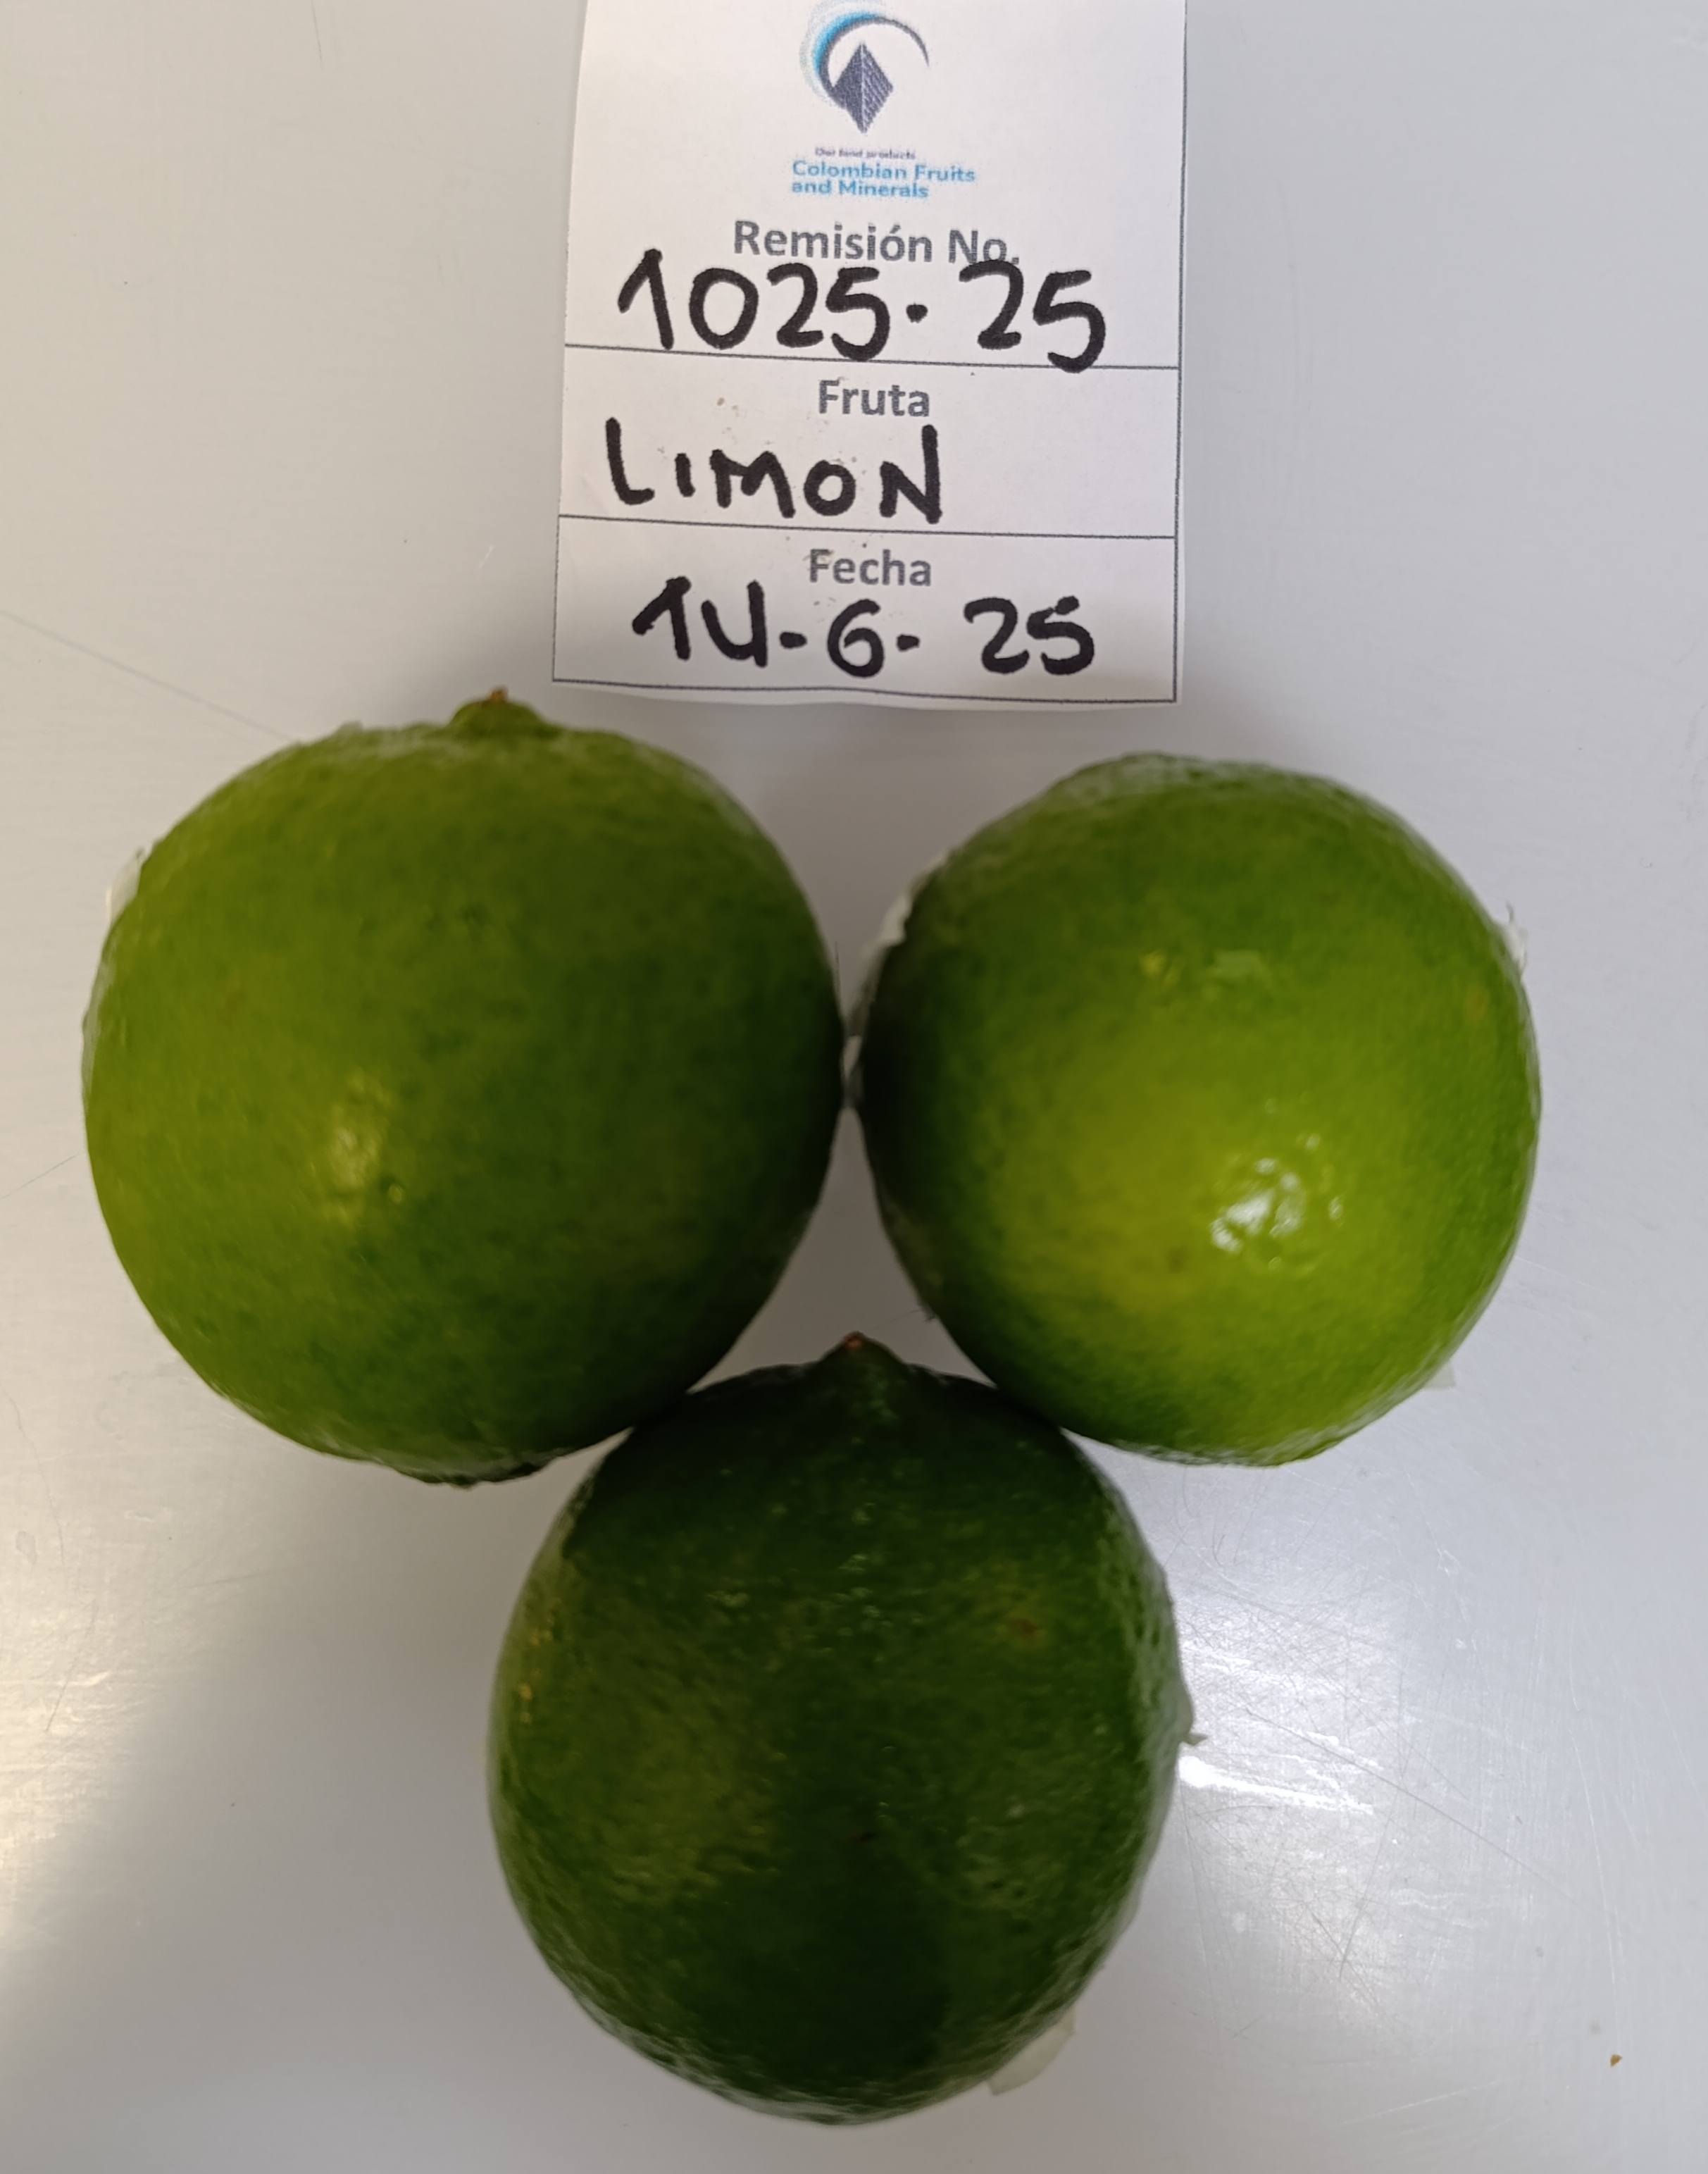 Our food products
Colombian Fruits
and Minerals
Remisión No.
1025-25
Fruta
LIMON
Fecha
14-6-25